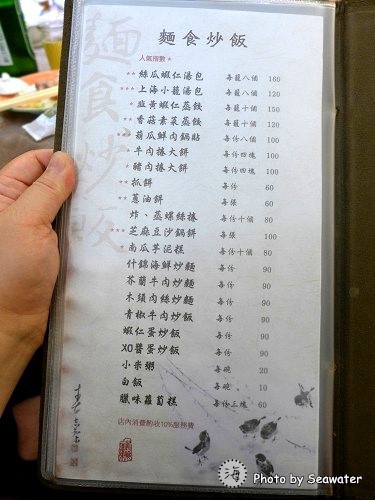 麵食炒飯
麵食炒飯
人氣指數★
★★ 絲瓜蝦仁湯包 每籠八個 160
★★★ 上海小籠湯包 每籠八個 120
★ 韭黃蝦仁蒸餃 每籠十個 150
★★ 香菇素菜蒸餃 每籠十個 120
翡瓜鮮肉鍋貼 每份八個 100
★ 牛肉捲大餅 每份四塊 100
★ 豬肉捲大餅 每份四塊 100
★★ 抓餅 每份 60
★★ 蔥油餅 每張 60
炸、蒸螺絲捲 每份十個 80
★★★ 芝麻豆沙鍋餅 每張 100
★ 南瓜芋泥糕 每份十個 80
什錦海鮮炒麵 每份 90
芥蘭牛肉炒麵 每份 90
木須肉絲炒麵 每份 90
青椒牛肉炒飯 每份 90
蝦仁蛋炒飯 每份 90
XO醬蛋炒飯 每份 90
小米粥 每碗 20
白飯 每碗 10
臘味蘿蔔糕 每份三塊 60
店內消費酌收10%服務費
海
Photo by Seawater